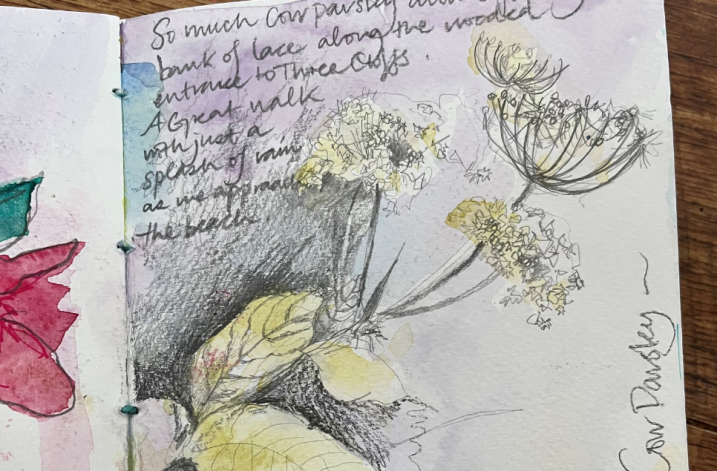 So much Cow Parsley
bank of lace along the wooded
entrance to Three Cliffs.
A Great walk
with just a
splash of rain
as we approach
the beach.
Cow Parsley ~